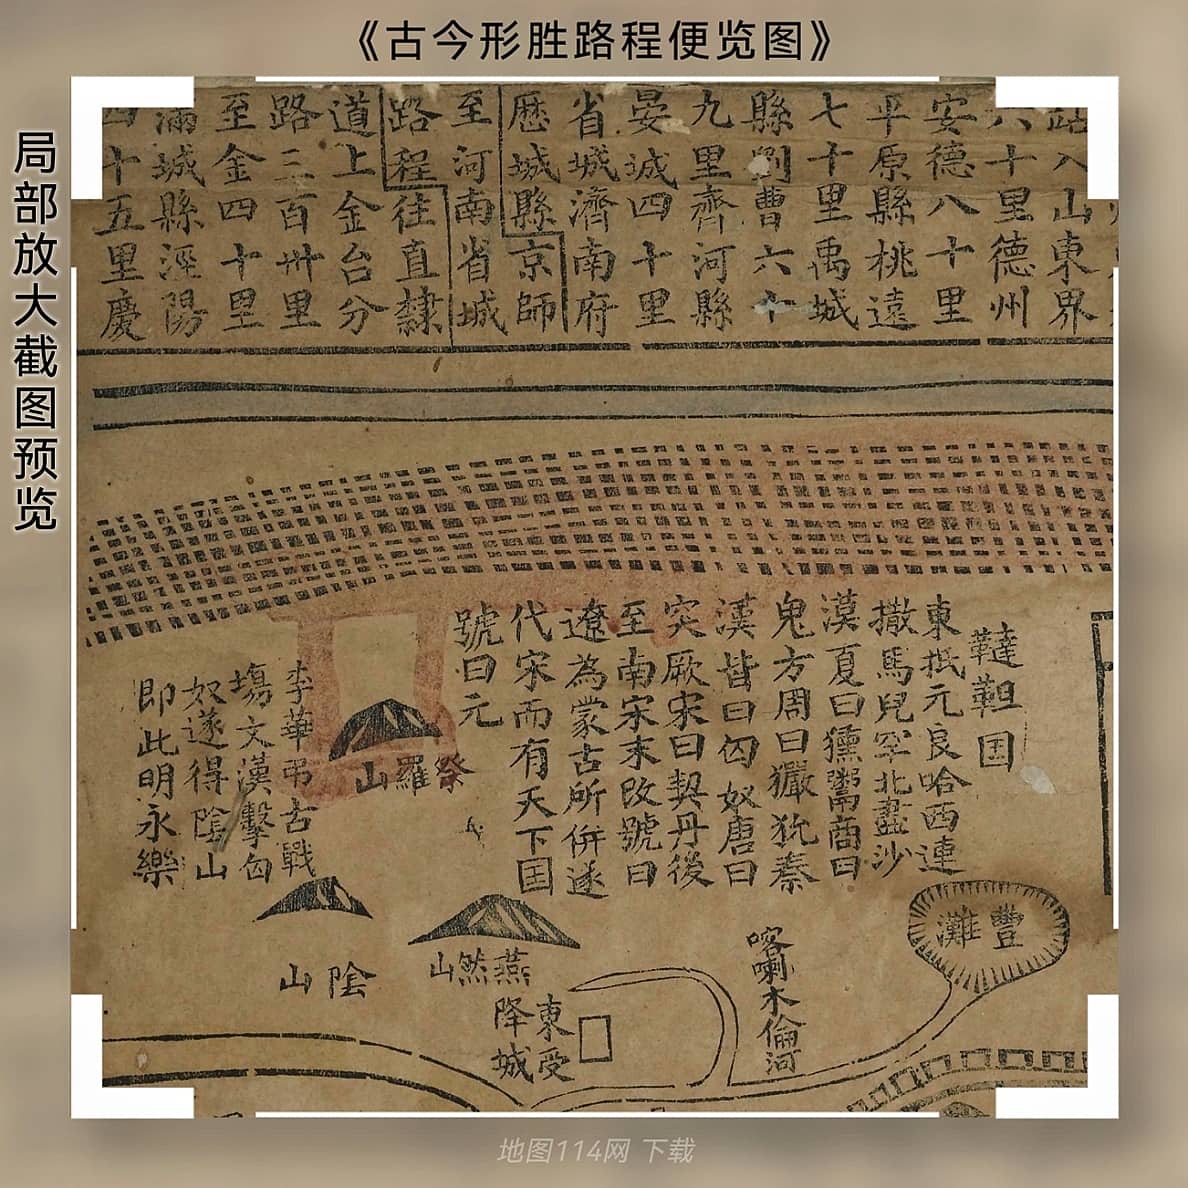 《古今形胜路程便览图》
局部放大截图预览
路八山東界
六十里德州
安德八十里
平原縣桃遠
七十里禹城
縣劉曹六十
九里齊河縣
晏城四十里
省城濟南府
歷城縣京師
至河南省城
路程往直隸
道上金台分
路三百卅里
至金四十里
滿城縣涇陽
四十五里慶
韃靼国
東抵元良哈西連
撒馬兒罕北盡沙
漠夏曰獯鬻商曰
鬼方周曰玁狁秦
漢皆曰匈奴唐曰
突厥宋曰契丹後
至南宋末改號曰
遼為蒙古所併遂
代宋而有天下国
號曰元
祭羅山
李華弔古戰
塲文漢擊匈
奴遂得陰山
即此明永樂
陰山
燕然山
東受
降城
喀喇木倫河
豐灘
地图114网 下载